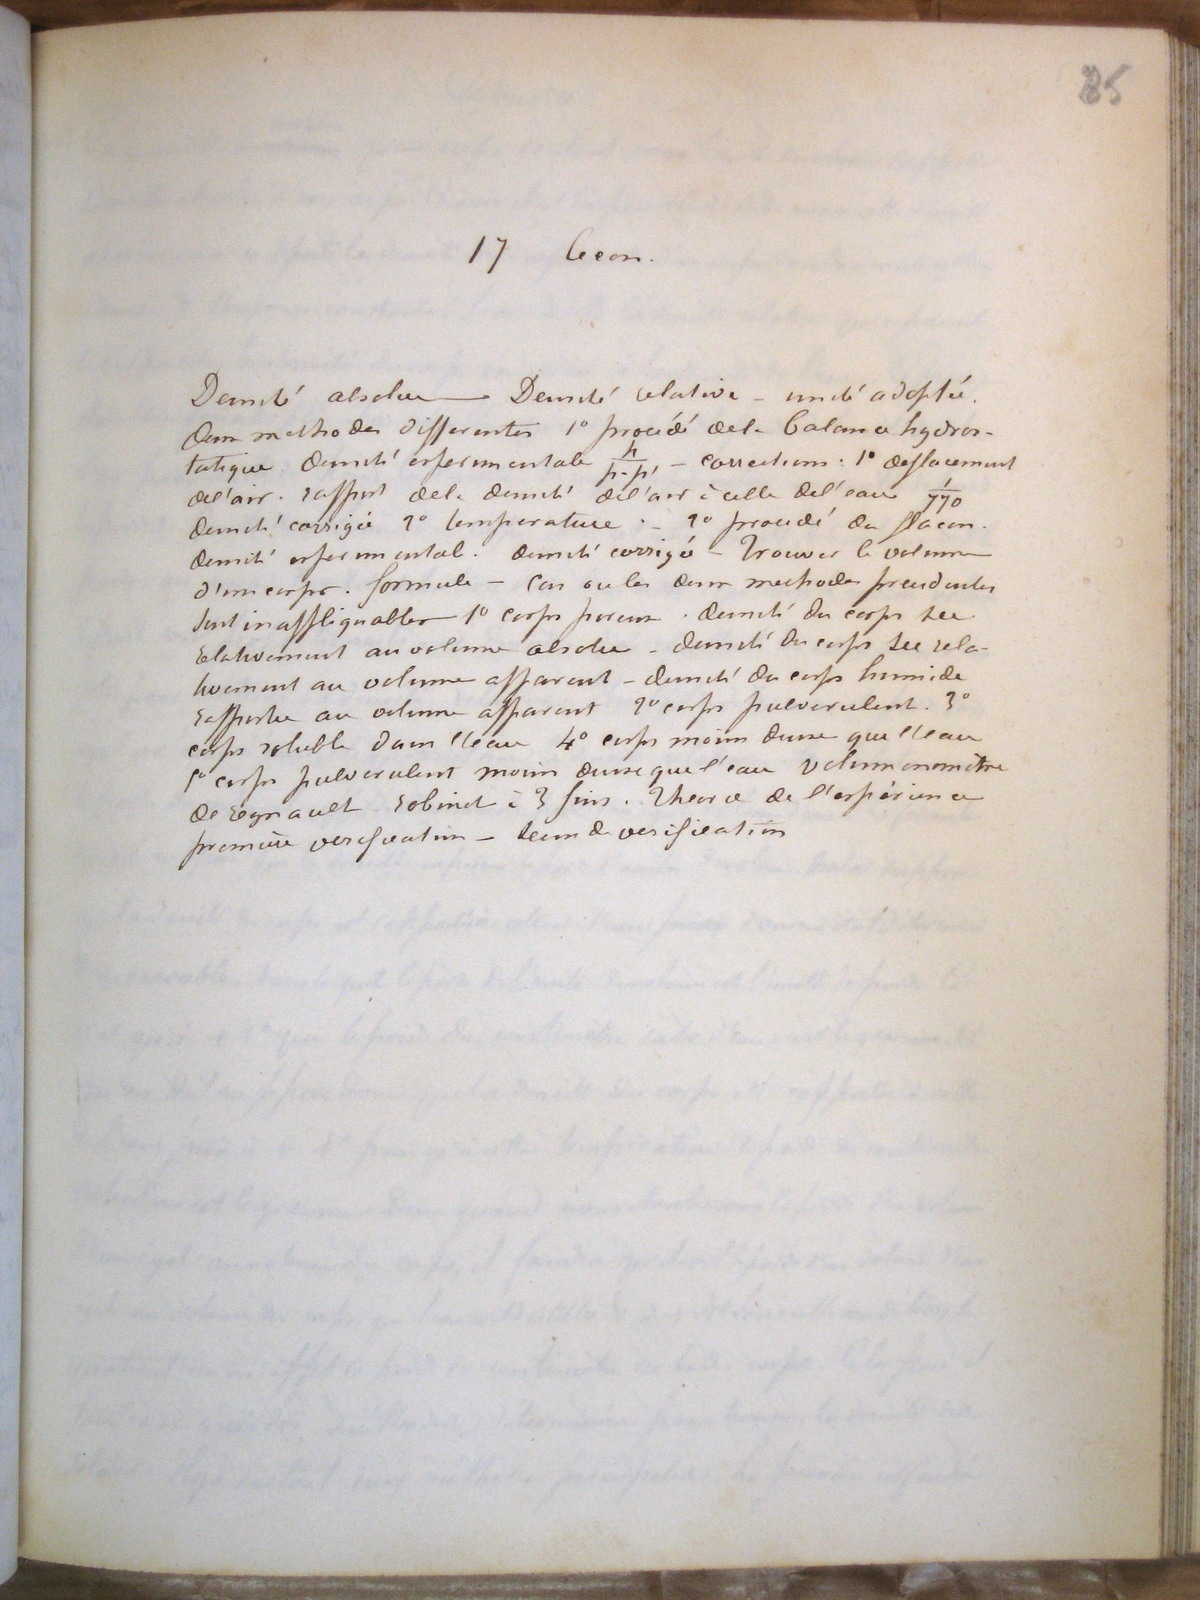 85
17 Lecon.
Densité absolue — Densité relative - unité adoptée.
Deux methodes differentes 1° procédé de la balance hydros-
tatique. densité experimentale p/p-p' - corrections: 1° deplacement
de l'air. rapport de la densité de l'air à celle de l'eau 1/770
densité corrigée 2° temperature. - 2° procédé du flacon.
densité experimental. densité corrigée - Trouver le volume
d'un corps. formule - Cas ou les deux methodes precedentes
sont inappliquables 1° corps poreux. densité du corps sec
relativement au volume absolu - densité du corps sec rela-
tivement au volume apparent - densité du corps humide
rapportee au volume apparent 2° corps pulverulent. 3°
corps soluble dans l'eau 4° corps moins dense que l'eau
5° corps pulverulent moins dense que l'eau volumenometre
de regnault robinet à 3 fins. Theorie de l'expérience
première verification - seconde verification